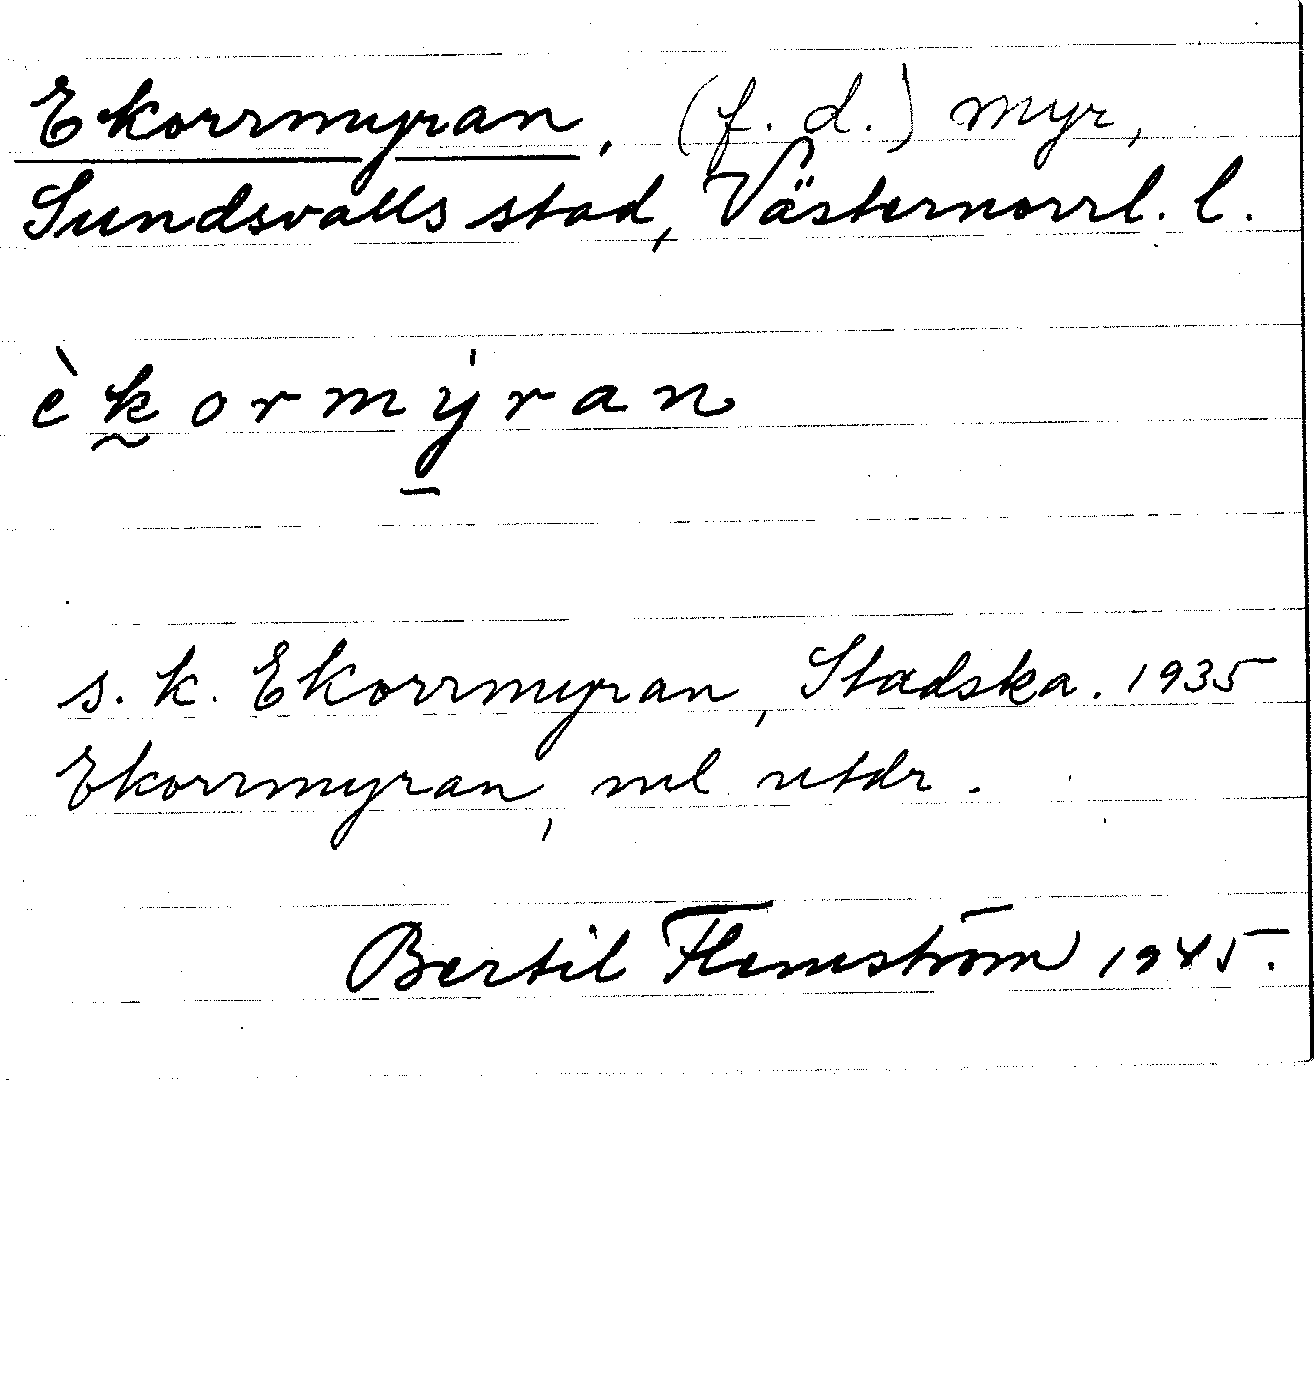 Ekorrmyran, (f. d.) myr,
Sundsvalls stad, Västernorrl. l.
èk̰ormy̱̍ran
s. k. Ekorrmyran, Stadska. 1935
Ekorrmyran, ml utdr.
Bertil Flemström 1945.